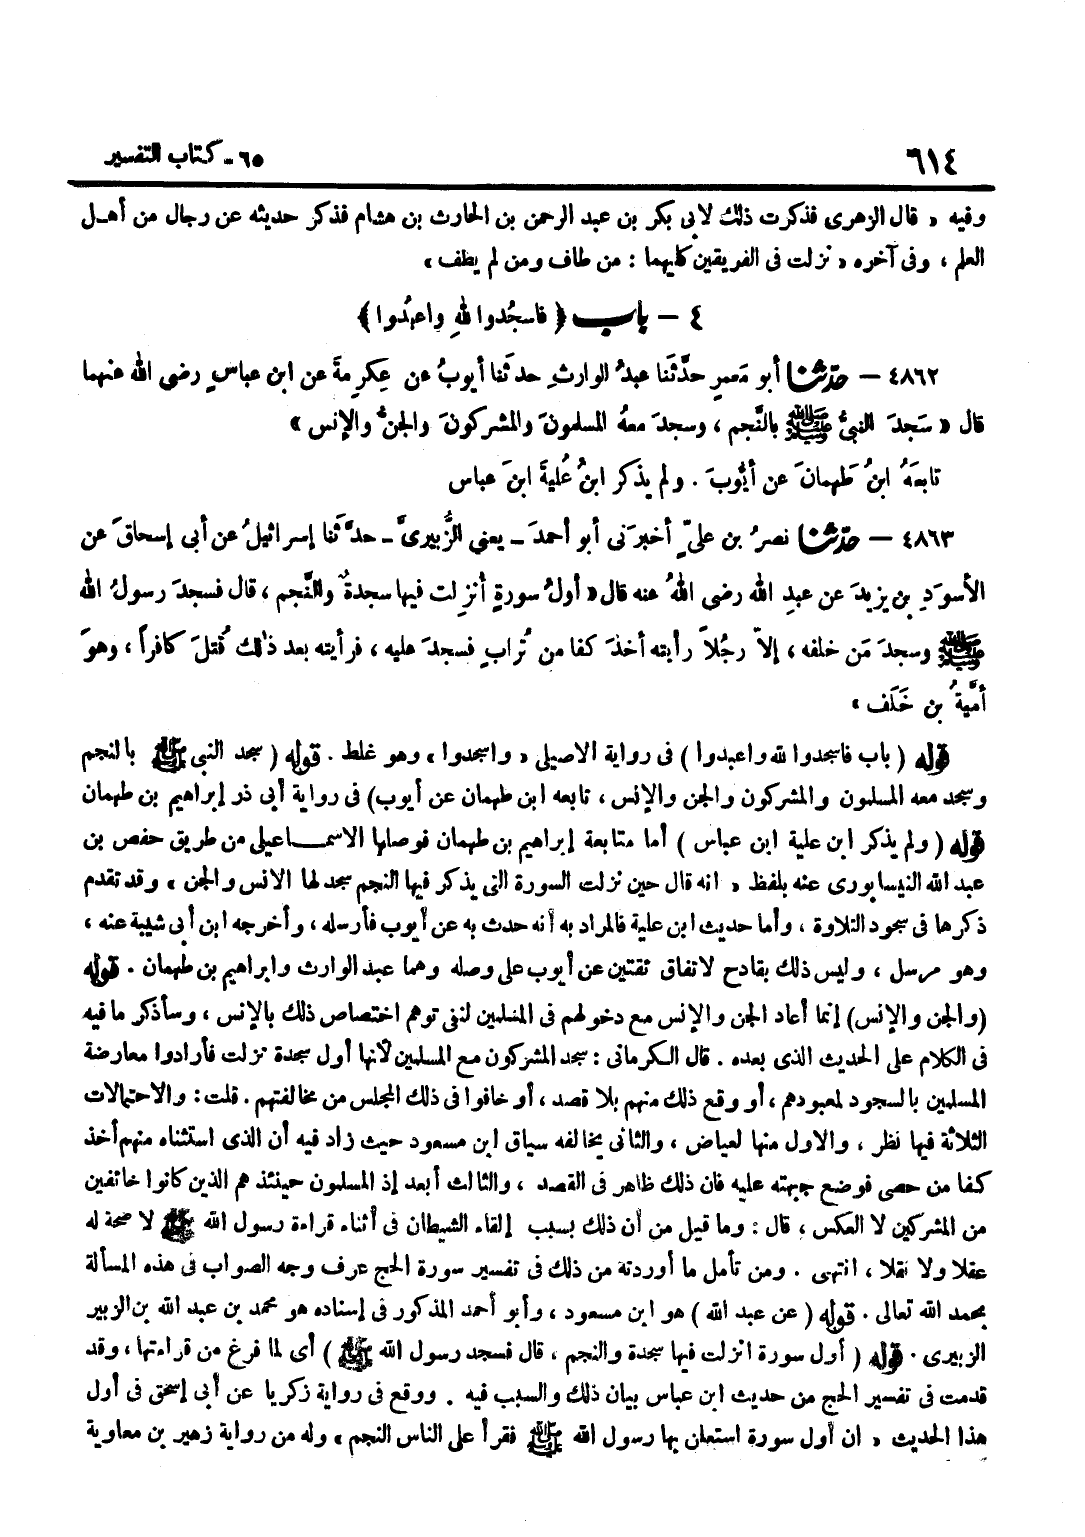 ٦١٤
٦٥ - كتاب التفسير
وفيه « قال الزهرى فذكرت ذلك لابى بكر بن عبد الرحمن بن الحارث بن هشام فذكر حديثه عن رجال من أهل
العلم ، وفى آخره « نزلت فى الفريقين كليهما : من طاف ومن لم يطف »
٤ – باب ﴿ فاسجُدوا للهِ واعبُدوا ﴾
٤٨٦٢ – حدّثنا أبو مَعمرٍ حدَّثَنا عبدُ الوارثِ حدثَنا أيوبُ عن عِكرِمةَ عن ابن عباسٍ رضى الله عنهما
قال « سَجدَ النبيُّ ﷺ بالنَّجم ، وسجدَ معهُ المسلمونَ والمشركونَ والجنُّ والإنس »
تابعَهُ ابنُ طَهمانَ عن أيُّوبَ . ولم يذكر ابنُ عُليةَ ابنَ عباس
٤٨٦٣ – حدّثنا نصرُ بن علىٍّ أخبرَنى أبو أحمدَ ـ يعني الزُّبيرىَّ ـ حدَّثَنا إسرائيلُ عن أبى إسحاقَ عن
الأسوَدِ بن يزيدَ عن عبدِ الله رضى اللهُ عنه قال « أولُ سورةٍ أُنزِلت فيها سجدةٌ والنَّجم ، قال فسجدَ رسولُ الله
ﷺ وسجدَ مَن خلفه ، إلاّ رجُلاً رأيته أخذَ كفا من تُرابٍ فسجدَ عليه ، فرأيته بعد ذلك قُتلَ كافراً ، وهوَ
أمَّيةُ بن خَلَف »
قوله ( باب فاسجدوا لله واعبدوا ) فى رواية الاصيلى « واسجدوا » وهو غلط . قوله ( سجد النبى ﷺ بالنجم
وسجد معه المسلمون والمشركون والجن والإنس ، تابعه ابن طهمان عن أيوب) فى رواية أبى ذر إبراهيم بن طهمان
قوله ( ولم يذكر ابن علية ابن عباس ) أما متابعة إبراهيم بن طهمان فوصلها الاسمـاعيلى من طريق حفص بن
عبد الله النيسابورى عنه بلفظ « انه قال حين نزلت السورة التى يذكر فيها النجم سجد لها الانس والجن » وقد تقدم
ذكرها فى سجود التلاوة ، وأما حديث ابن علية فالمراد به أنه حدث به عن أيوب فأرسله ، وأخرجه ابن أبى شيبة عنه ،
وهو مرسل ، وليس ذلك بقادح لاتفاق ثقتين عن أيوب على وصله وهما عبد الوارث وابراهيم بن طهمان . قوله
(والجن والإنس) إنما أعاد الجن والإنس مع دخولهم فى المسلمين لنفى توهم اختصاص ذلك بالإنس ، وسأذكر ما فيه
فى الكلام على الحديث الذى بعده . قال الكرمانى : سجد المشركون مع المسلمين لأنها أول سجدة نزلت فأرادوا معارضة
المسلمين بالسجود لمعبودهم ، أو وقع ذلك منهم بلا قصد ، أو خافوا فى ذلك المجلس من مخالفتهم . قلت : والاحتمالات
الثلاثة فيها نظر ، والاول منها لعياض ، والثانى يخالفه سياق ابن مسعود حيث زاد فيه أن الذى استثناه منهم أخذ
كفا من حصى فوضع جبهته عليه فان ذلك ظاهر فى القصد ، والثالث أبعد إذ المسلمون حينئذ هم الذين كانوا خائفين
من المشركين لا العكس ، قال : وما قيل من أن ذلك بسبب إلقاء الشيطان فى أثناء قراءة رسول الله ﷺ لا صحة له
عقلا ولا نقلا ، انتهى . ومن تأمل ما أوردته من ذلك فى تفسير سورة الحج عرف وجه الصواب فى هذه المسألة
بحمد الله تعالى . قوله ( عن عبد الله ) هو ابن مسعود ، وأبو أحمد المذكور فى إسناده هو محمد بن عبد الله بن الزبير
الزبيرى . قوله ( أول سورة انزلت فيها سجدة والنجم ، قال فسجد رسول الله ﷺ ) أى لما فرغ من قراءتها ، وقد
قدمت فى تفسير الحج من حديث ابن عباس بيان ذلك والسبب فيه . ووقع فى رواية زكريا عن أبى إسحق فى أول
هذا الحديث « ان أول سورة استعلن بها رسول الله ﷺ فقرأ على الناس النجم » وله من رواية زهير بن معاوية